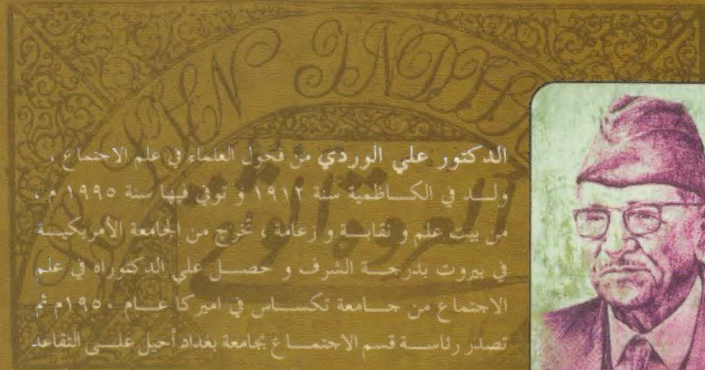 الدكتور علي الوردي من فحول العلماء في علم الاجتماع ،
ولد في الكاظمية سنة ١٩١٢ و توفي فيها سنة ١٩٩٥ م .
من بيت علم و نقابة و زعامة ، تخرج من الجامعة الأمريكية
في بيروت بدرجة الشرف و حصل علي الدكتوراه في علم
الاجتماع من جامعة تكساس في اميركا عام ١٩٥٠م ثم
تصدر رئاسة قسم الاجتماع بجامعة بغداد أحيل على التقاعد
العروة الوثقى